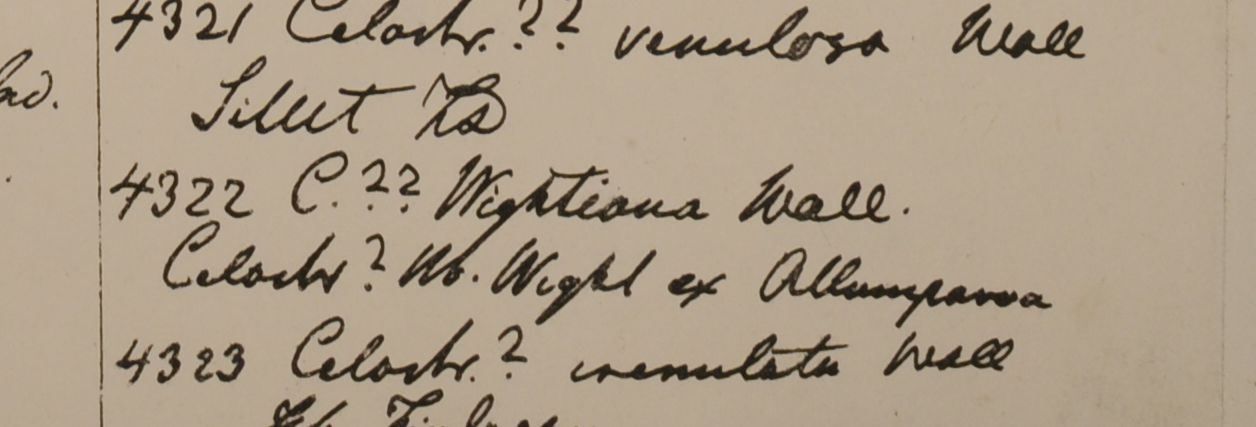 4321 Celastr. ?? venulosa Wall
Sillet FD
4322 C. ?? Wightiana Wall.
Celastr ? Hb. Wight ex Allumparva
4323 Celastr. ? crenulata Wall
Hb. Finlayson